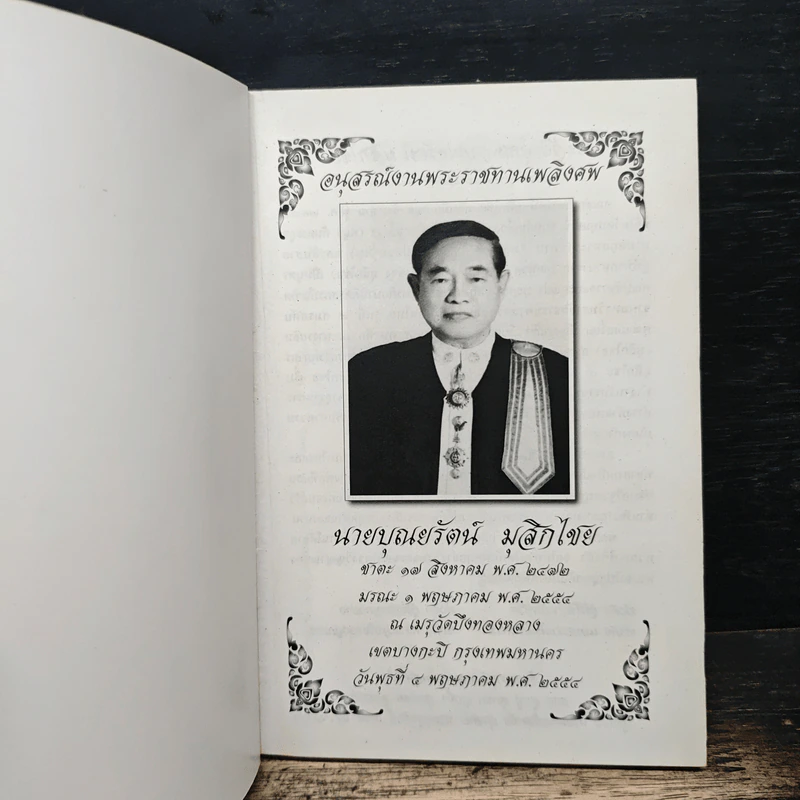 อนุสรณ์งานพระราชทานเพลิงศพ
นายบุณยรัตน์ มุสิกไชย
ชาตะ ๑๗ สิงหาคม พ.ศ. ๒๔๗๒
มรณะ ๑ พฤษภาคม พ.ศ ๒๕๕๔
ณ เมรุวัดบึงทองหลาง
เขตบางกะปิ กรุงเทพมหานคร
วันพุธที่ ๔ พฤษภาคม พ.ศ. ๒๕๕๔